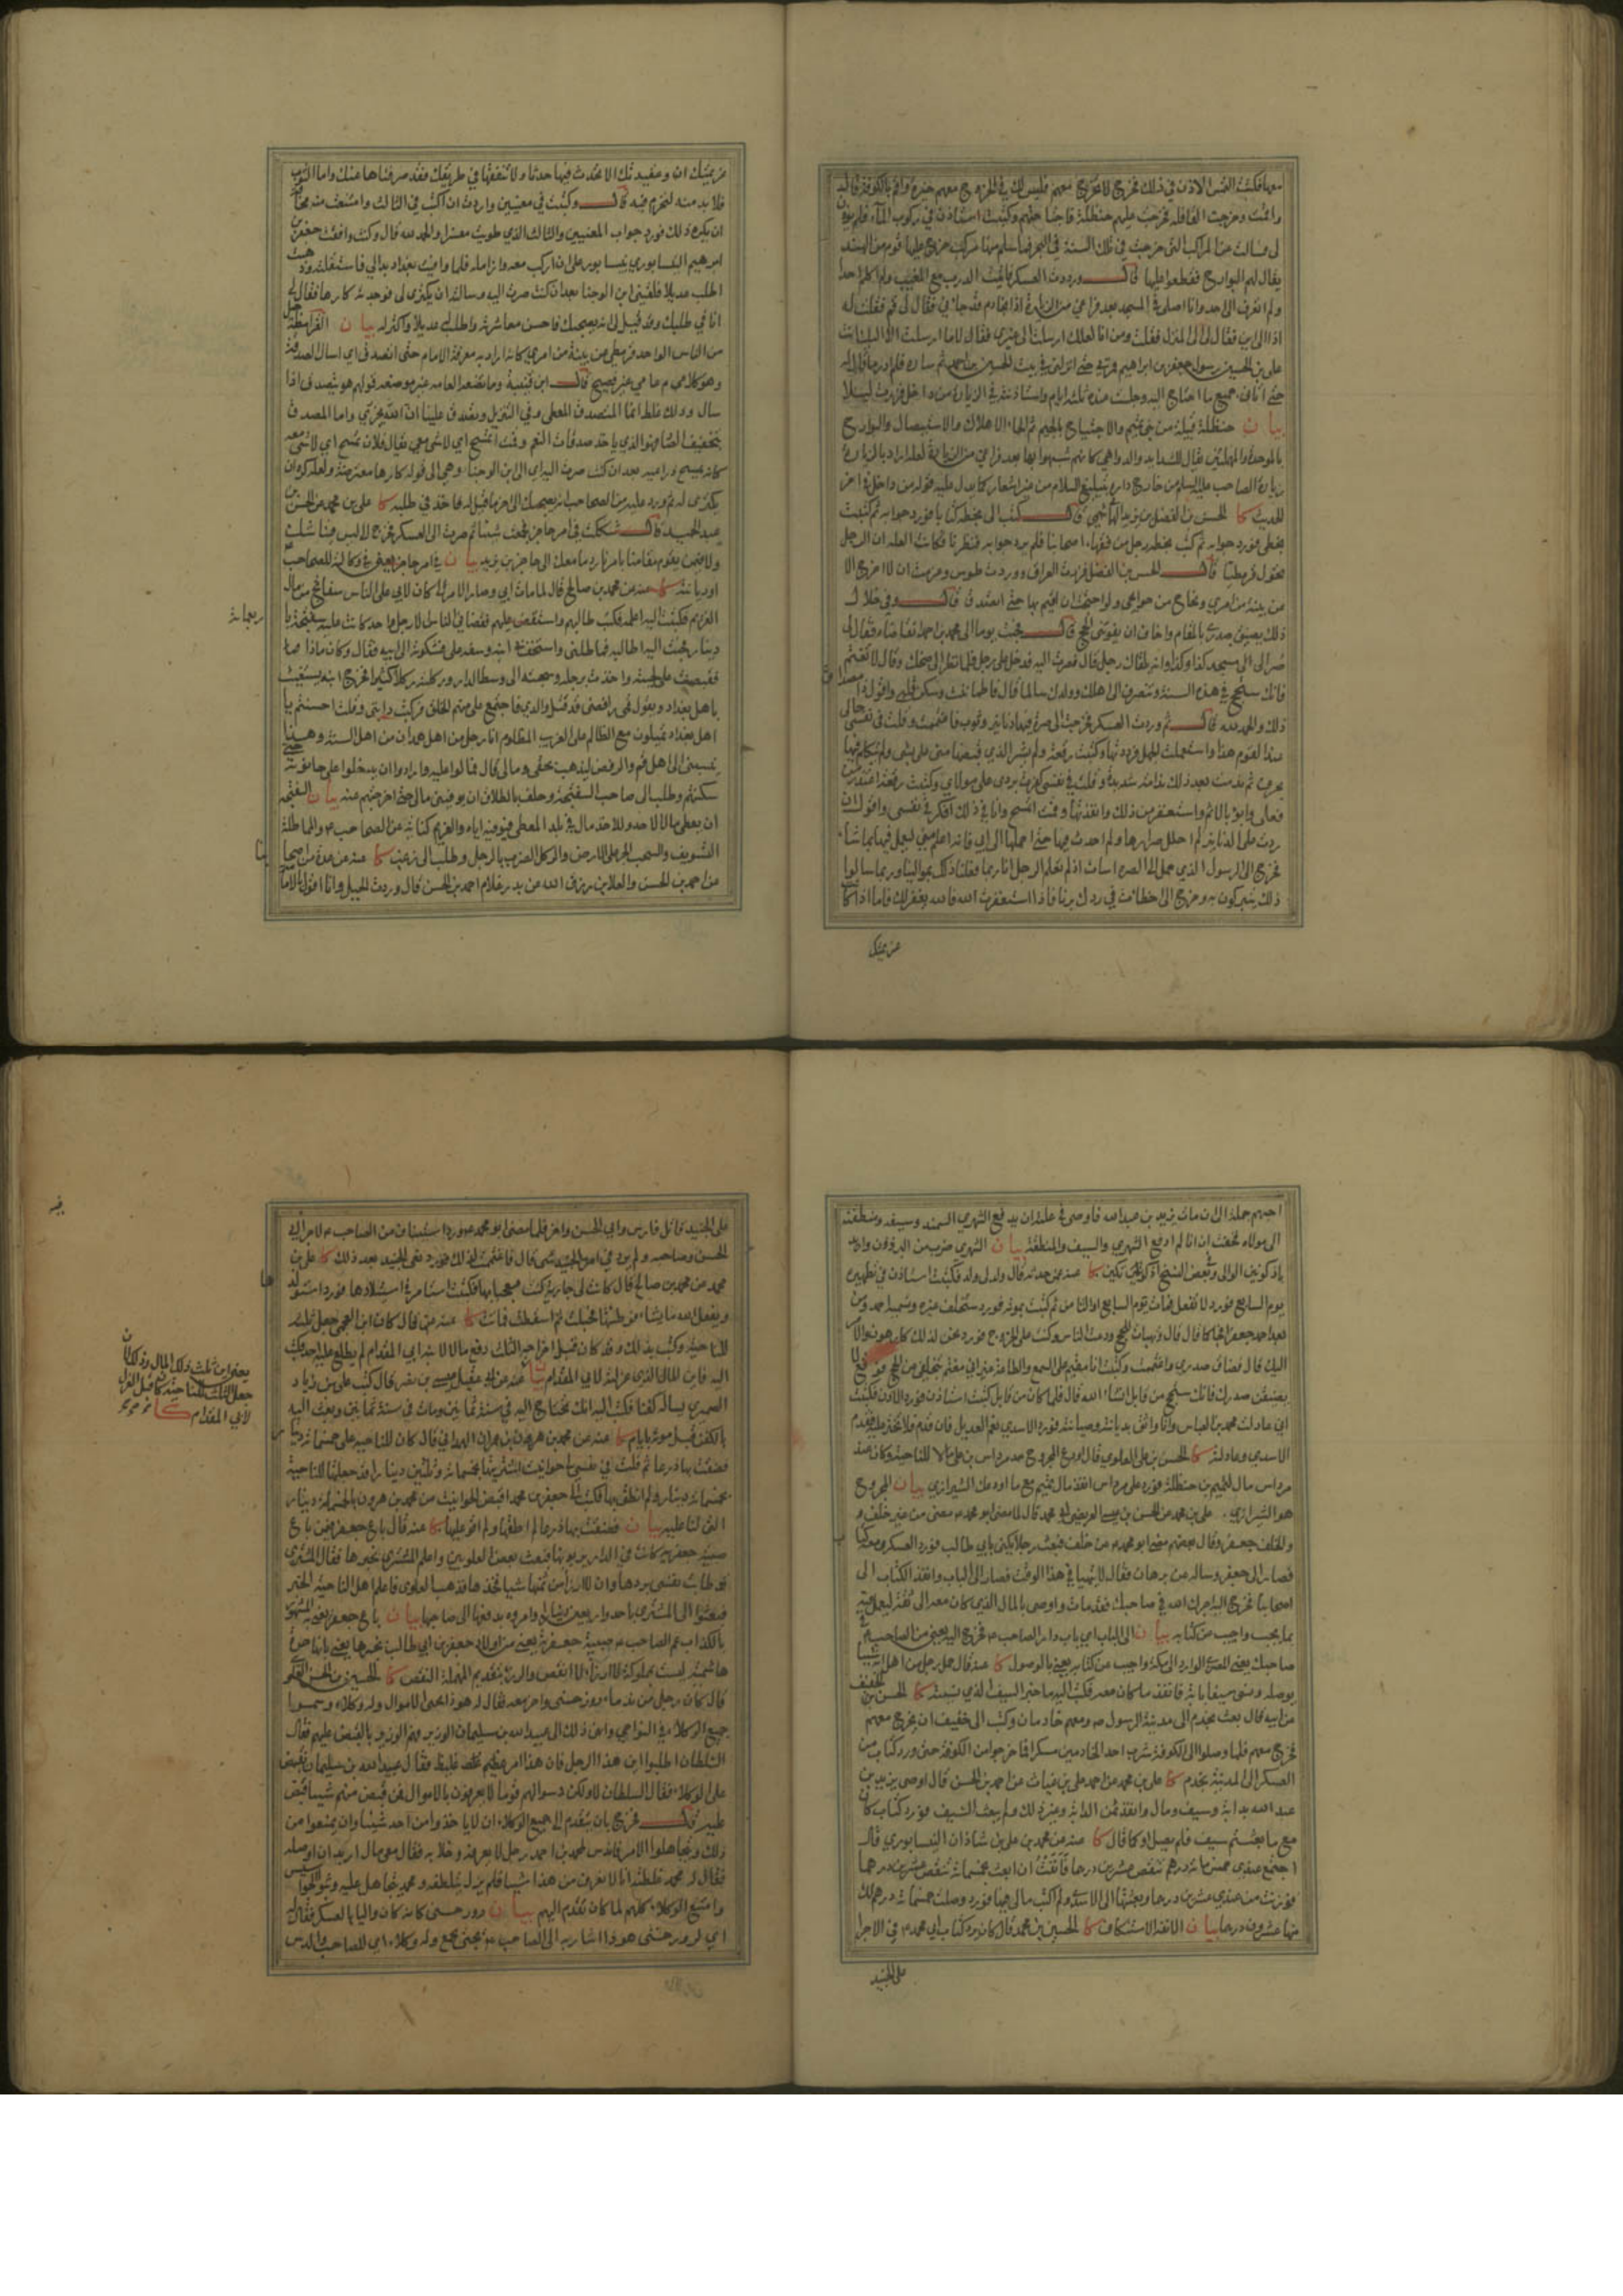 معها فكتبت التمس الاذن في ذلك فخرج لا تخرج معهم فليس لك في الخروج معهم خيرة واقم بالكوفة قال
واقمت وخرجت القافلة فخرجت عليهم حنظلة فاجتاحتهم وكتبت استاذن في ركوب الماء فلم يؤذن
لي فسالت عن المراكب التي خرجت في تلك السنة في البحر فما سلم منها مركب خرج عليها قوم من الهند
يقال لهم البوارج فقطعوا عليها قال وردت العسكر فاتيت الدرب مع المغيب ولم اكلم احدا
ولم اتعرف الى احد وانا اصلي في المسجد بعد فراغي من الزيارة اذا بخادم قد جاءني فقال لي قم فقلت له
اذا الى اين فقال لي الى المنزل فقلت ومن انا لعلك ارسلت الى غيري فقال لا ما ارسلت الا اليك انت
علي بن الحسين رسول جعفر بن ابراهيم فمر بي حتى انزلني في بيت الحسين بن احمد ثم ساره فلم ادر ما قال له
حتى اتاني جميع ما احتاج اليه وجلست عنده ثلثة ايام واستاذنته في الزيارة من داخل فزرت ليلا
بيان حنظلة قبيلة من بني تميم والاجتياح بالجيم ثم الحاء الاهلاك والاستيصال والبوارح
بالموحدة والمهملتين يقال للشدايد والدواهي كانهم شبهوا بها بعد فراغي من الزيارة لعله اراد بالزيارة
زيارة الصاحب عليه السلام من خارج داره بتبليغ السلام من غير اشعار كما يدل عليه قوله من داخل في اخر
الحديث كا الحسن بن الفضل بن يزيد الهاشمي قال كتب ابي بخطه كتابا فورد جوابه ثم كتبت
بخطي فورد جوابه ثم كتب بخطه رجل من فقهاء اصحابنا فلم يرد جوابه فنظرنا فكانت العلة ان الرجل
تحول قرمطيا قال الحسن بن الفضل فزرت العراق ووردت طوس وعزمت ان لا اخرج الا
عن بينة من امري ونجاح من حوائجي ولو احتجت ان اقيم بها حتى اتصدق قال وفي خلال
ذلك يضيق صدري بالمقام واخاف ان يفوتني الحج قال فجئت يوما الى محمد بن احمد اتقاضاه فقال لي
صر الى الى مسجد كذا وكذا وانه يلقاك رجل قال فصرت اليه فدخل علي رجل فلما نظر الي ضحك وقال لا تغتم
فانك ستحج في هذه السنة وتنصرف الى اهلك وولدك سالما قال فاطماننت وسكن قلبي واقول ذا مصداق
ذلك والحمد لله قال ثم وردت العسكر فخرجت الي صرة فيها دنانير وثوب فاغتممت وقلت في نفسي جزائي
عند القوم هذا واستعملت الجهل فرددتها وكتبت رقعة ولم يشر الذي قبضها مني علي بشيء ولم يتكلم فيها
بحرف ثم ندمت بعد ذلك ندامة شديدة وقلت في نفسي كفرت بردي على مولاي وكتبت رقعة اعتذر من
فعلي وابوء بالاثم واستغفر من ذلك وانفذتها وقمت اتمسح وانا في ذلك افكر في نفسي واقول ان
ردت علي الدنانير لم احلل صرارها ولم احدث فيها حتى احملها الى ابي فانه اعلم مني ليعمل فيها بما شاء
فخرج الى الرسول الذي حمل الي الصرة اسات اذ لم تعلم الرجل انا ربما فعلنا ذلك بموالينا وربما سالونا
ذلك يتبركون به وخرج الي اخطات في ردك برنا فاذا استغفرت الله فالله يغفر لك فاما اذا كانت
عزيمتك
عزيمتك ان وعقيدتك الا تحدث فيها حدثا ولا تنفقها في طريقك فقد صرفناها عنك واما الثوب
فلا بد منه لتحرم فيه قال وكتبت في معنيين واردت ان اكتب في الثالث وامتنعت منه مخافة
ان يكره ذلك فورد جواب المعنيين والثالث الذي طويت مفسرا والحمد لله قال وكنت وافقت جعفر بن
ابرهيم النيسابوري بنيسابور على ان اركب معه وازامله فلما وافيت بغداد بدا لي فاستقلته وذهبت
اطلب عديلا فلقيني ابن الوجنا بعد ان كنت صرت اليه وسالته ان يكتري لي فوجدته كارها فقال لي
انا في طلبك وقد قيل لي انه يصحبك فاحسن معاشرته واطلب له عديلا واكتر له بيان القرامطة
من الناس الواحد قرمطي عن بينة من امري كانه اراد به معرفة الامام حتى اتصدق اي اسال الصدقة
وهو كلام عامي غير فصيح قال ابن قتيبة وما تضعه العامة غير موضعه قولهم هو يتصدق اذا
سال وذلك غلط انما المتصدق المعطي وفي التنزيل وتصدق علينا ان الله يجزي واما المصدق
بتخفيف الصاد فهو الذي ياخذ صدقات النعم وقمت اتمسح اي لا شيء معي يقال فلان يتمسح اي لا شيء معه
كانه يمسح ذراعيه بعد ان كنت صرت اليه اي الى ابن الوجنا وهي الى قوله كارها معترضة ولعله كره ان
يكتري له ثم ورد عليه من الصاحب انه يصحبك الى اخر ما قيل له فاخذ في طلبه كا علي بن محمد عن الحسن بن
عبد الحميد قال شككت في امر حاجز فجمعت شيئا ثم صرت الى العسكر فخرج الي ليس فينا شك
ولا فيمن يقوم مقامنا بامرنا رد ما معك الى حاجز بن يزيد بيان في امر حاجز يعني في وكالته للصاحب
او ديانته كا عنه عن محمد بن صالح قال لما مات ابي وصار الامر لي كان لابي على الناس سفاتج من مال
الغريم فكتبت اليه اعلمه فكتب طالبهم واستقض عليهم فقضاني الناس الا رجل واحد كانت عليه سفتجة با
ربعمائة
دينار فجئت اليه اطالبه فماطلني واستخف بي ابنه وسفه علي فشكوته الى ابيه فقال وكان ماذا
فقبضت على لحيته واخذت برجله وسحبته الى وسط الدار وركلته ركلا كثيرا فخرج ابنه يستغيث
باهل بغداد ويقول قمي رافضي قد قتل والدي فاجتمع علي منهم الخلق فركبت دابتي وقلت احسنتم يا
اهل بغداد تميلون مع الظالم على الغريب المظلوم انا رجل من اهل همدان من اهل السنة وهذا
ينسبني الى اهل قم والرفض ليذهب بحقي ومالي قال فمالوا عليه وارادوا ان يدخلوا على حانوته حتى
سكنتهم وطلب الي صاحب السفتجة وحلف بالطلاق ان يوفيني مالي حتى اخرجتهم عنه بيان السفتجة
ان يعطي مالا لاحد وللاخذ مال في بلد المعطي فيوفيه اياه والغريم كناية عن الصاحب ع والمماطلة
التسويف والسحب الجر على الارض والركل الضرب بالرجل وطلب الي رغب كا عنه عن عدة من اصحا
بنا
عن احمد بن الحسن والعلا بن رزق الله عن بدر غلام احمد بن الحسن قال وردت الجبل وانا لا اقول بالامامة
احبهم جملة الى ان مات يزيد بن عبد الله فاوصى في علته ان يدفع الشهري السمند وسيفه ومنطقته
الى مولاه فخفت ان انا لم ادفع الشهري والسيف والمنطقة بيان الشهري ضرب من البرذون واريد
باذكوتكين الوالي وفي بعض النسخ اذكوتكين كا عنه عمن حدثه قال ولد لي ولد فكتبت استاذن في تطهيره
يوم السابع فورد لا تفعل فمات يوم السابع او الثامن ثم كتبت بموته فورد ستخلف غيره وتسميه احمد ومن
بعد احمد جعفر فجاء كما قال قال وتهيات للحج وودعت الناس وكنت على الخروج فورد نحن لذلك كارهون والامر
اليك قال فضاق صدري واغتممت وكتبت انا مقيم على السمع والطاعة غير اني مغتم بتخلفي عن الحج فوقع لا
يضيقن صدرك فانك ستحج من قابل انشاء الله قال فلما كان من قابل كتبت استاذن فورد الاذن فكتبت
اني عادلت محمد بن العباس وانا واثق بديانته وصيانته فورد الاسدي نعم العديل فان قدم فلا تختر عليه فقدم
الاسدي وعادلته كا الحسن بن علي العلوي قال اودع المجروح مرداس بن علي مالا للناحية وكان عند
مرداس مال لتميم بن حنظلة فورد على مرداس انفذ مال تميم مع ما اودعك الشيرازي بيان المجروح
هو الشيرازي. علي بن محمد عن الحسن بن عيسى العريضي ابي محمد قال لما مضى ابو محمد ع مضى من غير خلف و
والخلف جعفر وقال بعضهم مضى ابو محمد ع عن خلف فبعث رجلا يكنى بابي طالب فورد العسكر ومعه كتاب
فصار الى جعفر وساله عن برهان فقال لا يتهيا في هذا الوقت فصار الى الباب وانفذ الكتاب الى
اصحابنا فخرج اليه اجرك الله في صاحبك فقد مات واوصى بالمال الذي كان معه الى ثقة ليعمل فيه
بما يجب واجيب عن كتابه بيان الى الباب اي باب دار الصاحب ع فخرج اليه يعني من الصاحب
صاحبك يعني المصري الوارد الى مكة واجيب عن كتابه يعني بالوصول كا عنه قال حمل رجل من اهل ابه شيئا
يوصله ونسي سيفا بابه فانفذ ما كان معه فكتب اليه ما خبر السيف الذي نسيته كا الحسن بن خفيف
عن ابيه قال بعث بخدم الى مدينة الرسول ص ومعهم خادمان وكتب الى خفيف ان يخرج معهم
فخرج معهم فلما وصلوا الى الكوفة شرب احد الخادمين مسكرا فما خرجوا من الكوفة حتى ورد كتاب من
العسكر الى المدينة بخدم كا علي بن محمد عن احمد بن ابي علي بن غياث عن احمد بن الحسن قال اوصى يزيد بن
عبد الله بدابة وسيف ومال وانفذ ثمن الدابة وغير ذلك ولم يبعث السيف فورد كتاب كان
مع ما بعثتم سيف فلم يصل او كما قال كا عنه عن محمد بن علي بن شاذان النيسابوري قال
اجتمع عندي خمس مائة درهم تنقص عشرين درهما فانفت ان ابعث بخمسمائة تنقص عشرين درهما
فوزنت من عندي عشرين درهما وبعثتها الى الاسدي ولم اكتب مالي فيها فورد وصلت خمسمائة درهم لك
منها عشرون درهما بيان الانفة الاستنكاف كا الحسين بن محمد قال كان يرد كتاب ابي محمد ع في الاجراء
على الجنيد
على الجنيد قاتل فارس وابي الحسن واخر فلما مضى ابو محمد ع ورد استيناف من الصاحب ع لاجراء ابي
الحسن وصاحبه ولم يرد في امر الجنيد شيء قال فاغتممت لذلك فورد نعي الجنيد بعد ذلك كا علي بن
محمد عن محمد بن صالح قال كانت لي جارية كنت معجبا بها فكتبت استامر في استيلادها فورد استولد
ها
ويفعل الله ما يشاء فوطئتها فحبلت ثم اسقطت فماتت كا عنه قال كان ابن العجمي جعل ثلثه
للناحية وكتب بذلك وقد كان قبل اخراجه الثلث دفع مالا لابنه ابي المقدام لم يطلع عليه احد فكتب
اليه فاين المال الذي عزلته لابي المقدام كا عنه عن ابي عقيل عيسى بن نصر قال كتب علي بن زياد
بيان
يعني اين ثلث ذلك المال وذلك لان
جعل الثلث للناحية كان قبل العزل
لابي المقدام كا
الصيمري يساله كفنا فكتب اليه انك تحتاج اليه في سنة ثمانين ومات في سنة ثمانين وبعث اليه
بالكفن قبل موته بايام كا عنه عن محمد بن هرون بن عمران الهمداني قال كان للناحية علي خمسمائة دينار
فضقت بها ذرعا ثم قلت في نفسي لي حوانيت اشتريتها بخمسمائة وثلثين دينارا قد جعلتها للناحية
بخمسمائة دينار ولم انطق بها فكتب الى محمد بن جعفر اقبض الحوانيت من محمد بن هرون بالخمسمائة دينار
التي لنا عليه بيان فضقت بها ذرعا لم اطقها ولم اقو عليها كا عنه قال باع جعفر فيمن باع
صبية جعفرية كانت في الدار يربونها فبعث بعض العلويين واعلم المشتري خبرها فقال المشتري
قد طابت نفسي بردها وان لا ارزا من ثمنها شيئا فخذها فذهب العلوي فاعلم اهل الناحية الخبر
فبعثوا الى المشتري باحد واربعين دينارا وامروه بدفعها الى صاحبها بيان باع جعفر يعني به المشهور
بالكذاب عم الصاحب ع صبية جعفرية يعني من اولاد جعفر بن ابي طالب خبرها يعني بانها حرة
هاشمية ليست بمملوكة لا ارزا لا انقص والرزء بتقديم المهملة النقص كا الحسين بن الحسن العلوي
قال كان رجل من ندماء روز حسني واخر معه فقال له هوذا يجبي الاموال وله وكلاء وسموا
جميع الوكلاء في النواحي وانهى ذلك الى عبيد الله بن سليمان الوزير فهم الوزير بالقبض عليهم فقال
السلطان اطلبوا اين هذا الرجل فان هذا امر غليظ فقال عبيد الله بن سليمان نقبض
على الوكلاء فقال السلطان لا ولكن دسوا لهم قوما لا يعرفون بالاموال فمن قبض منهم شيئا قبض
عليه قال فخرج بان يتقدم الى جميع الوكلاء ان لا ياخذوا من احد شيئا وان يمتنعوا من
ذلك ويتجاهلوا الامر فاندس لمحمد بن احمد رجل لا يعرفه وخلا به فقال معي مال اريد ان اوصله
فقال له محمد غلطت انا لا اعرف من هذا شيئا فلم يزل يتلطفه ومحمد يتجاهل عليه وبثوا الجواسيس
وامتنع الوكلاء كلهم لما كان تقدم اليهم بيان روز حسني كانه كان واليا بالعسكر فقال له
اي لروز حسني هوذا اشار به الى الصاحب ع يجبي يجمع وله وكلاء اي للصاحب والدس